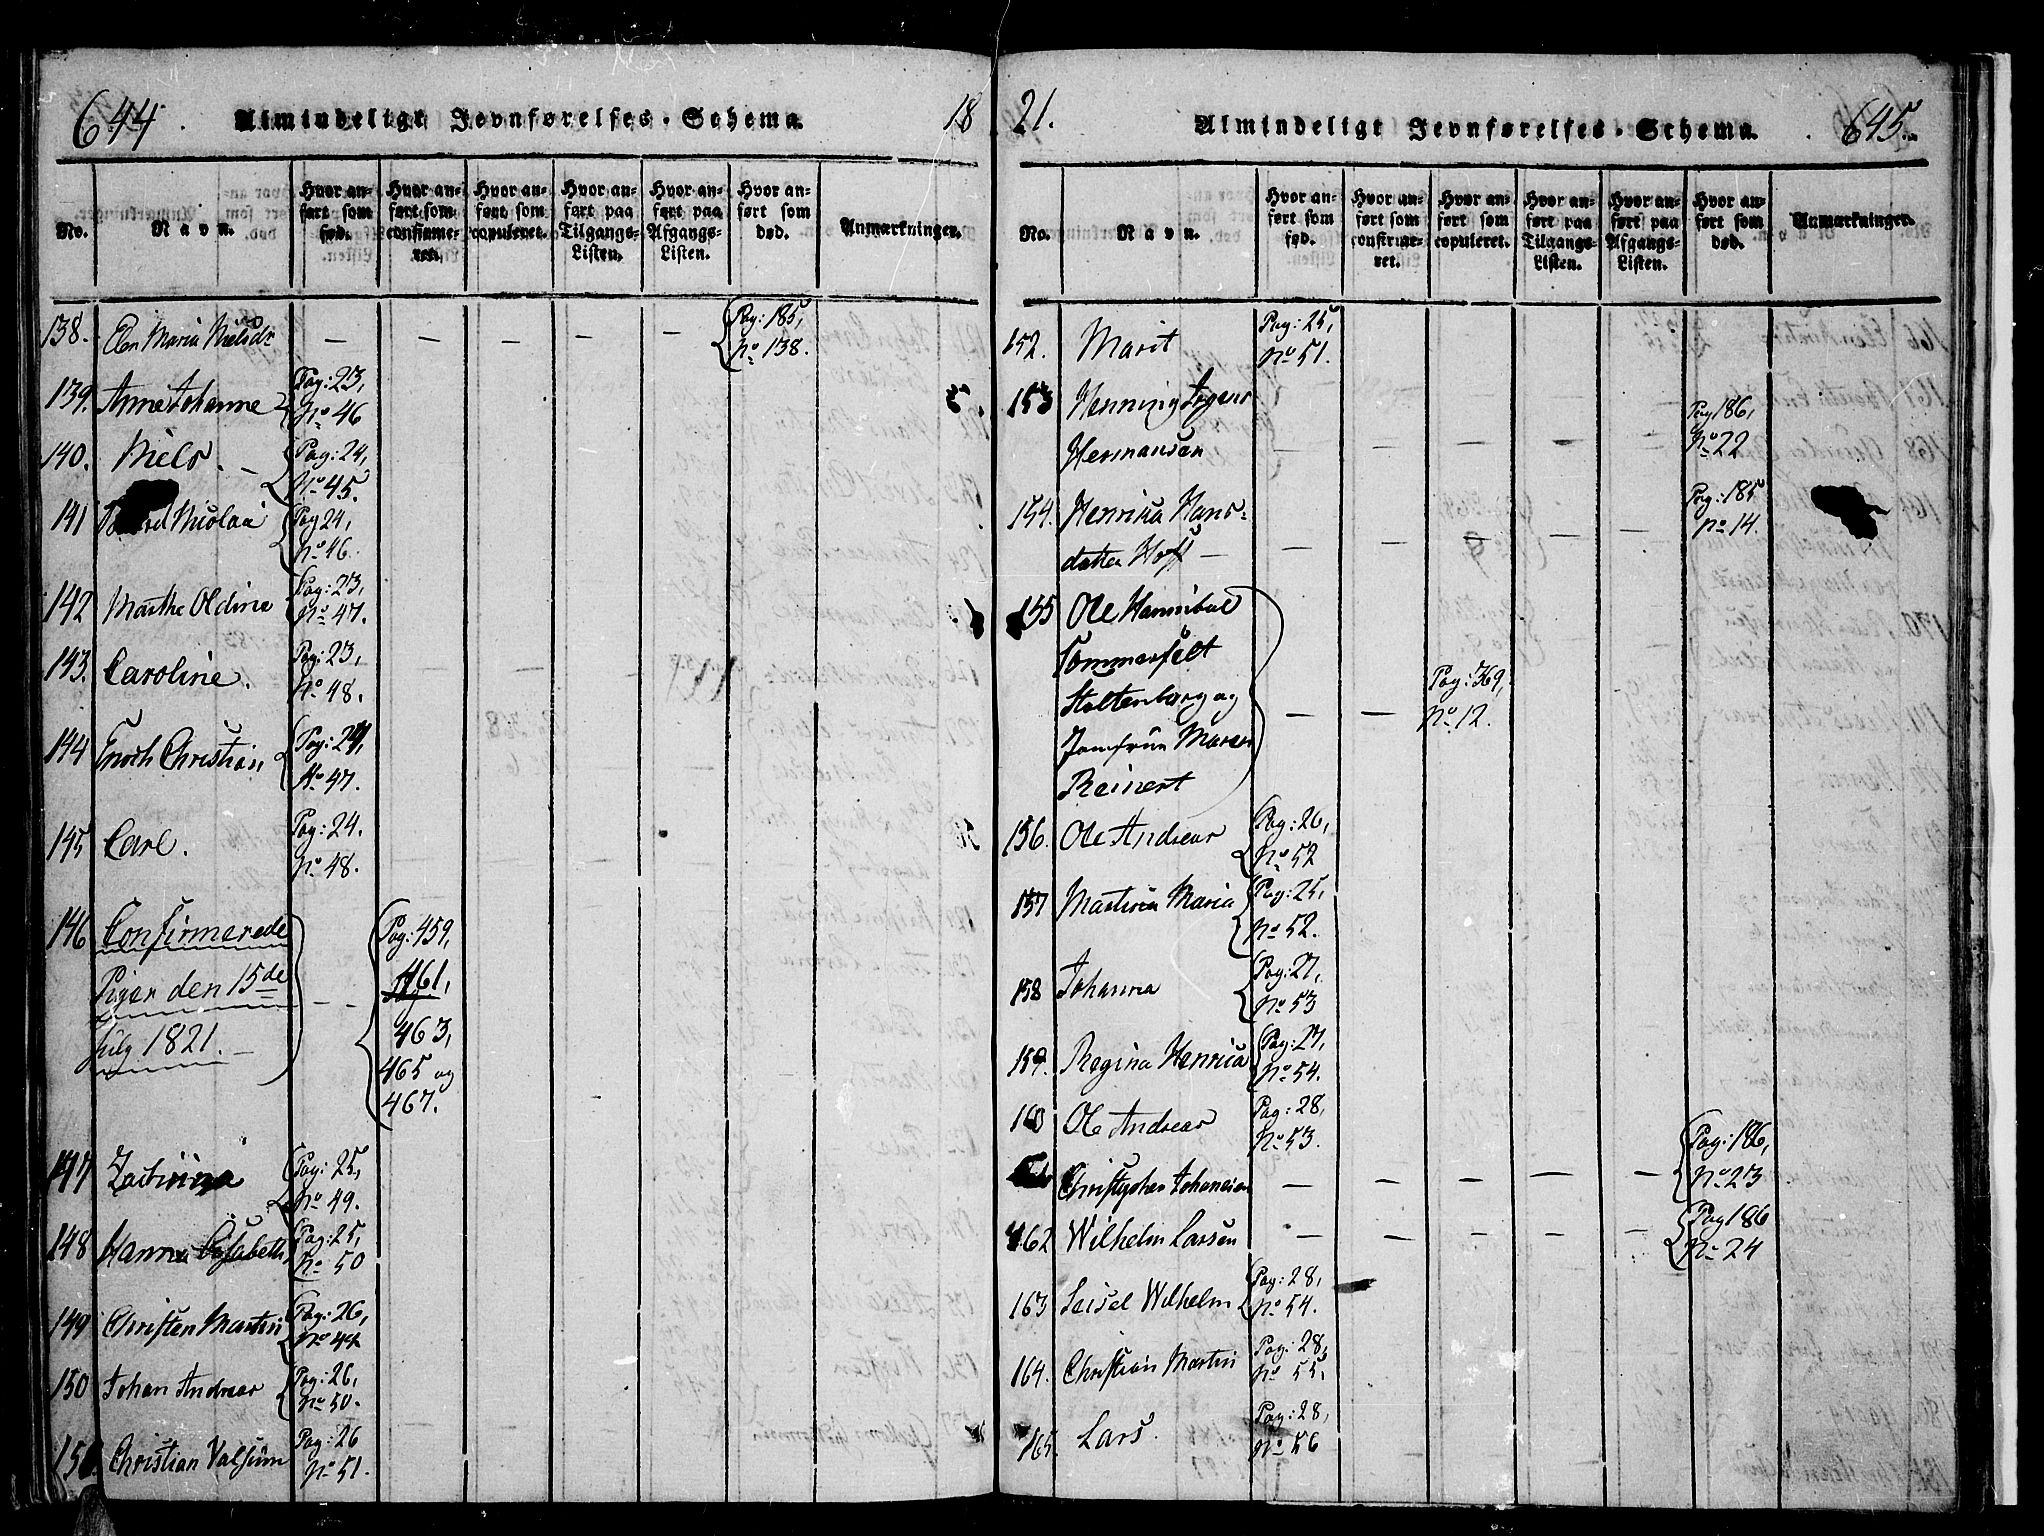 644. Almindeligt Jevnførelses-Schema 18
No.
Navn.
Hvor an-
ført som
fød.
Hvor an-
ført som
confirme-
ret.
Hvor an-
ført som
copuleret.
Hvor an-
ført paa
Tilgangs-
Listen.
Hvor an-
ført paa
Afgangs-
Listen.
Hvor an-
ført som
død.
Anmærkninger.
138. Elen Maria Nielsdr — — — — Pag: 185,
No 138.
139. Anne Johanne Pag: 23,
No 46
140. Niels. — Pag: 24,
No 45.
141 Nicolai Pag 24,
No 46.
142 Marthe Oldine Pag: 23,
No 47.
143. Caroline. Pag: 23,
No 48.
144 Enoch Christian Pag: 24,
No 47.
145 Carl. Pag: 24.
No 48.
146 Confirmerede Pag: 459,
Piger den 15de — — 461,
July 1821. — 463,
465 og
467.
147 Zachrina Pag: 25,
No 49.
148 Hanna Elisabeth, Pag: 25,
No 50
149 Christen Martin Pag: 26,
No 49
150 Johan Andreas Pag: 26,
No 50.
151 Christian Valsum Pag: 26
No 51.
21. Almindeligt Jevnførelses-Schema. 645.
No.
Navn.
Hvor an-
ført som
fød.
Hvor an-
ført som
confirme-
ret.
Hvor an-
ført som
copuleret.
Hvor an-
ført paa
Tilgangs-
Listen.
Hvor an-
ført paa
Afgangs-
Listen.
Hvor an-
ført som
død.
Anmærkninger.
152. Marit Pag: 25,
No 51.
153 Henning Jrgens Pag 186,
Hermansen — — — — — No 22
154. Henrica Hans- Pag: 185
datter Hoff — — — — — — No 14.
155 Ole Hannibal
Sommerfelt
Stoltenberg og — — Pag: 369,
Jomfrue Maren No 12.
Reinert
156. Ole Andreas Pag: 26,
No 52
157 Martina Maria Pag: 25,
No 52.
158 Johanna Pag: 27,
No 53
159. Regina Henrica Pag: 27,
No 54.
160 Ole Andreas Pag: 28,
No 53.
Christopher Johannesen — — — — — Pag: 186,
No 23
162 Wilhelm Larsen — — — — — Pag 186
No 24
163 Seisel Wilhelm Pag: 28,
No 54.
164. Christian Martin Pag: 28,
No 55.
165. Lars. Pag: 28,
No 56